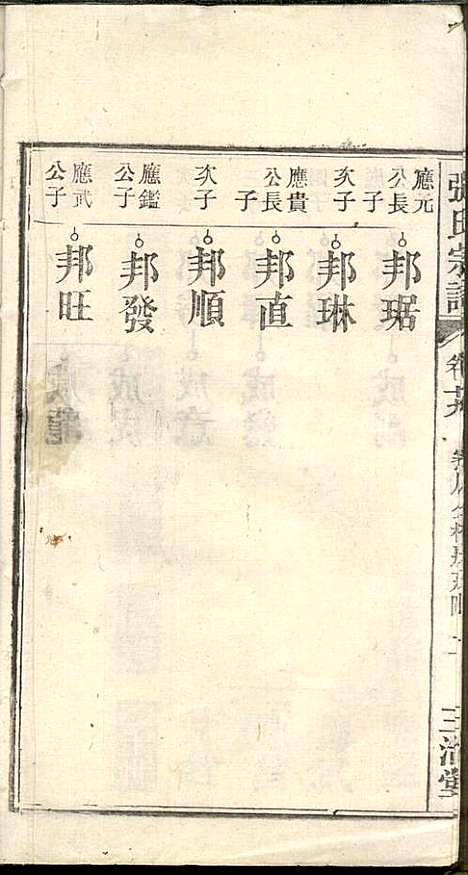 應元公長子
邦琚
次子
邦琳
應貴公長子
邦直
次子
邦順
應鑑公子
邦發
應武公子
邦旺
張氏宗譜
卷